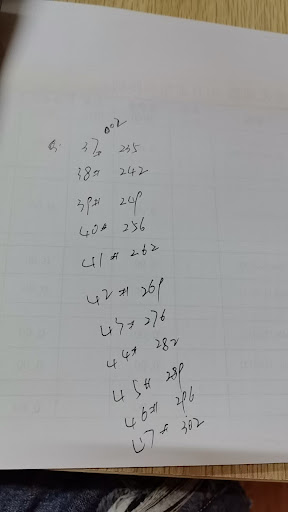 002
37# 235
38# 242
39# 249
40# 256
41# 262
42# 269
43# 276
44# 282
45# 289
46# 296
47# 302